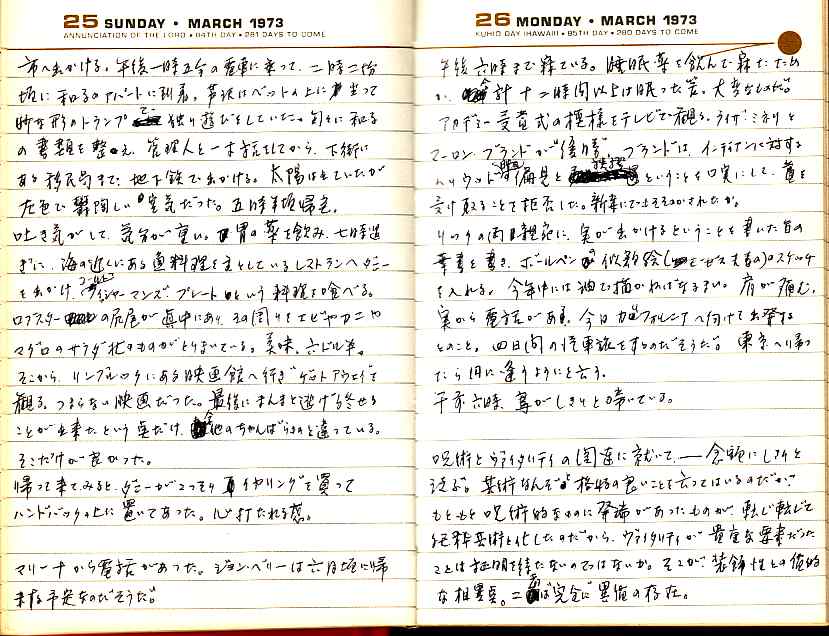 25 SUNDAY • MARCH 1973
ANNUNCIATION OF THE LORD • 84TH DAY • 281 DAYS TO COME
市へ出かける。午後一時五分の電車に乗って、二時二十分
頃に和子のアパートに到着。芦沢はベットの上に坐って
妙な形のトランプで独り遊びをしていた。
の書類を整え、管理人と一本話をしてから、下街に
ある移民局まで地下鉄で出かける。太陽は出ていたが
灰色で鬱陶しい空気だった。五時半頃帰宅。
吐き気がして、気分が重い。胃の薬を飲み、七時過
ぎに、海の近くにある魚料理を主としているレストランへダニー
と出かけ、フィッシャーマンズ プレートという料理を食べる。
ロブスターの尻尾が真中にあり、その周りをエビやカニや
マグロのサラダ状のものがとりまいている。美味、六ドル半。
そこから、リンブルックにある映画館へ行き"ゲットアウェイ"を
観る。つまらない映画だった。最後にまんまと逃げ終せる
ことが出来たという点だけ、他のちゃんばらものと違っている。
そこだけが良かった。
帰って来てみると、ダニーがこっそりイヤリングを買って
ハンドバックの上に置いてあった。心打たれる感。
マリーナから電話があった。ジョン・ベリーは六月頃に帰
来る予定なのだそうだ。
26 MONDAY • MARCH 1973
KUHIO DAY (HAWAII) • 85TH DAY • 280 DAYS TO COME
午後六時まで寝ている。睡眠薬を飲んで寝たため
か、合計十二時間以上は眠った筈。大変なものだ。
アカデミー受賞式の模様をテレビで観る。ライザ・ミネリと
マーロン・ブランドが獲得。ブランドは、インディアンに対する
ハリウッド映画の偏見とということを口実にして、賞を
受け取ることを拒否した。
リックの両親宛に、実が出かけるということを書いた旨の
葉書を書き、ボールペンで似顔絵のスケッチ
を入れる。今年中には油で描かねばなるまい。肩が痛む。
実から電話があり、今日カリフォルニアへ向けて出発する
とのこと。四日間の汽車旅をするのだそうだ。東京へ帰っ
たら円に逢うようにと云う。
午前六時、鳥がしきりと啼いている。
呪術とヴァイタリティの関連に就いて、—— 念頭にしきと
浮ぶ。芸術なんぞと格好の良いことを云ってはいるのだが、
もともと呪術的なものに発端があったものが、転じ転じて
純粋芸術と化したのだから、ヴァイタリティが貴重な要素だった
ことは証明を待たないのではないか。そこが、装飾性との価値的
な相異点。二つは完全に異質の存在。